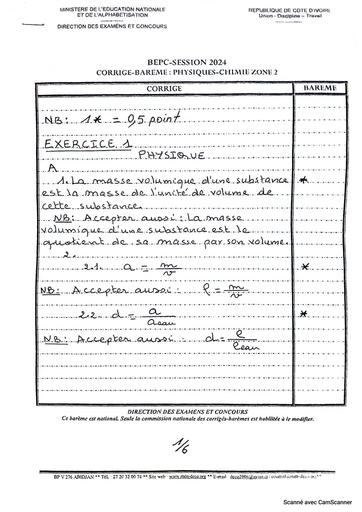 MINISTERE DE L'EDUCATION NATIONALE
ET DE L'ALPHABETISATION
DIRECTION DES EXAMENS ET CONCOURS
REPUBLIQUE DE COTE D'IVOIRE
Union - Discipline - Travail
BEPC-SESSION 2024
CORRIGE-BAREME : PHYSIQUES-CHIMIE ZONE 2
CORRIGE
BAREME
NB : 1* = 0,5 point
EXERCICE 1
PHYSIQUE
A
1. La masse volumique d'une substance *
est la masse de l'unité de volume de
cette substance.
NB : Accepter aussi : La masse
volumique d'une substance est le
quotient de sa masse par son volume.
2.
2.1. a = m/v *
NB : Accepter aussi : ρ = m/v
2.2. d = a/a eau *
NB : Accepter aussi : d = ρ/ρ eau
DIRECTION DES EXAMENS ET CONCOURS
Ce barème est national. Seule la commission nationale des corrigés-barèmes est habilitée à le modifier.
1/6
Scanné avec CamScanner